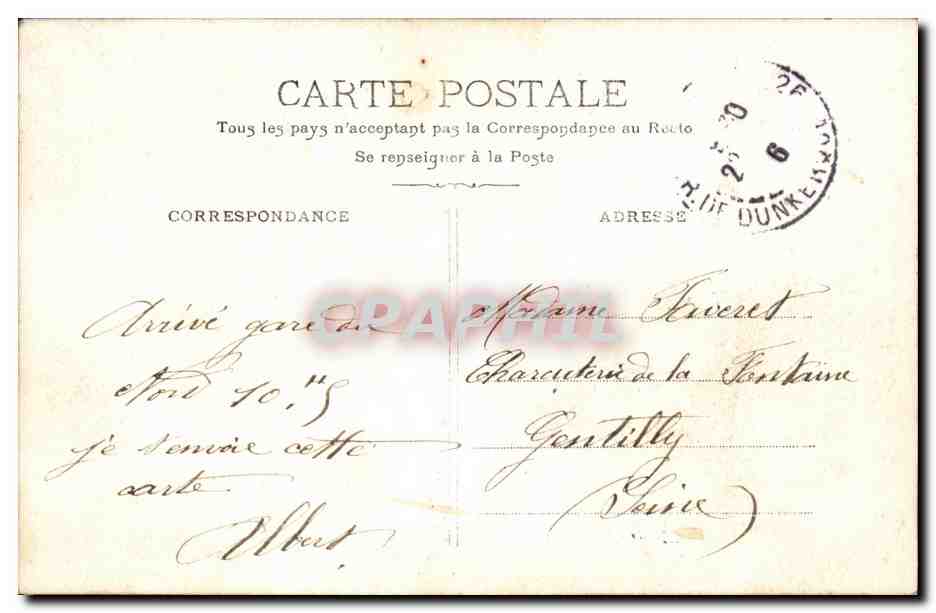 CARTE POSTALE
Tous les pays n'acceptent pas la Correspondance au Recto
Se renseigner à la Poste
CORRESPONDANCE
ADRESSE
R. DE DUNKERQUE
25
6
CPAPHIL
Arrivé gare du
Nord 10.H5
je t'envoie cette
carte
Albert
Madame Faveret
Charcuterie de la Fontaine
Gentilly
(Seine)